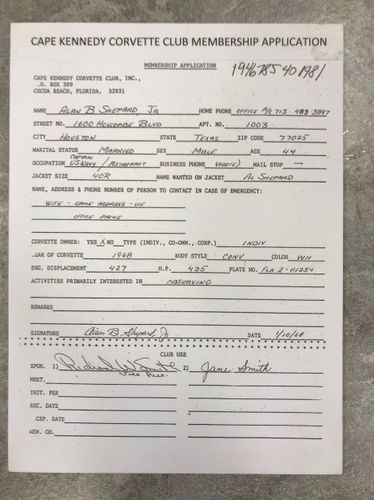 CAPE KENNEDY CORVETTE CLUB MEMBERSHIP APPLICATION
MEMBERSHIP APPLICATION
CAPE KENNEDY CORVETTE CLUB, INC.,
.O. BOX 309
COCOA BEACH, FLORIDA. 32931
NAME ALAN B SHEPARD, JR HOME PHONE OFFICE A/C 713-483-3897
STREET NO. 1600 HOLCOMBE BLVD APT. NO. 1003
CITY HOUSTON STATE TEXAS ZIP CODE 77025
MARITAL STATUS MARRIED SEX MALE AGE 44
CAPTAIN
OCCUPATION US NAVY / ASTRONAUT BUSINESS PHONE (ABOVE) MAIL STOP —
JACKET SIZE 40R NAME WANTED ON JACKET AL SHEPARD
NAME, ADDRESS & PHONE NUMBER OF PERSON TO CONTACT IN CASE OF EMERGENCY:
WIFE - SAME ADDRESS - USE
OFFICE PHONE
CORVETTE OWNER: YES X NO TYPE (INDIV., CO-OWN., CORP.) INDIV
.EAR OF CORVETTE 1968 BODY STYLE CONV COLOR WH
ENG. DISPLACEMENT 427 H.P. 435 PLATE NO. FLA
ACTIVITIES PRIMARILY INTERESTED IN OBSERVING
REMARKS
SIGNATURE Alan B. Shepard, Jr DATE 4/10/68
CLUB USE
SPON. 1) 2) Jane Smith
Vice Pres.
MEET.
INIT. FEE
REC. DATE
.CEP. DATE
MEM. CH.